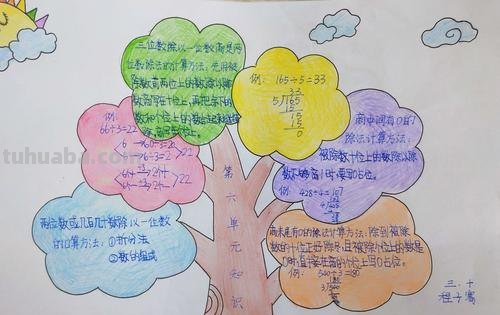 三位数除以一位数商是两
位数除法的计算方法:先用被
除数前两位上的数除以除
数商写在十位上,再把余下的
数和个位上的数合起来继续
除,商写在个位。
例: 165÷5=33
33
5√165
15
15
15
0
例:
66÷3=22
6
60÷3=20
6÷3=2
22
22
商中间有0的
除法计算方法:
被除数十位上的数除以除
数不够商1时要写0占位。
例: 428÷4=107
第六单元知识
两位数或几百几十数除以一位数
的口算方法:①拆分法
②数的组成
商末尾有0的除法计算方法:除到被除
数的十位正好除尽,且被除个位上的数是
0时,直接在商的个位上写0占位。
例:
三.十
程子骞
tuhuaba.com